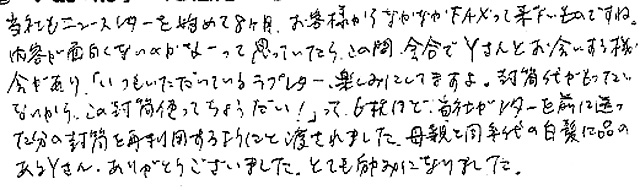 当社もニュースレターを始めて8ヶ月。お客様からなかなかFAXって来ないものですね。
内容が面白くないのかなーって思っていたら、この間、会合でYさんとお会いする機
会があり、「いつもいただいているラブレター、楽しみにしてますよ。封筒代がもったい
ないから、この封筒使ってちょうだい!」って、6枚ほど、当社がレターを前に送っ
た分の封筒を再利用するようにと渡されました。母親と同年代の白髪に品の
あるYさん、ありがとうございました。とても励みになりました。